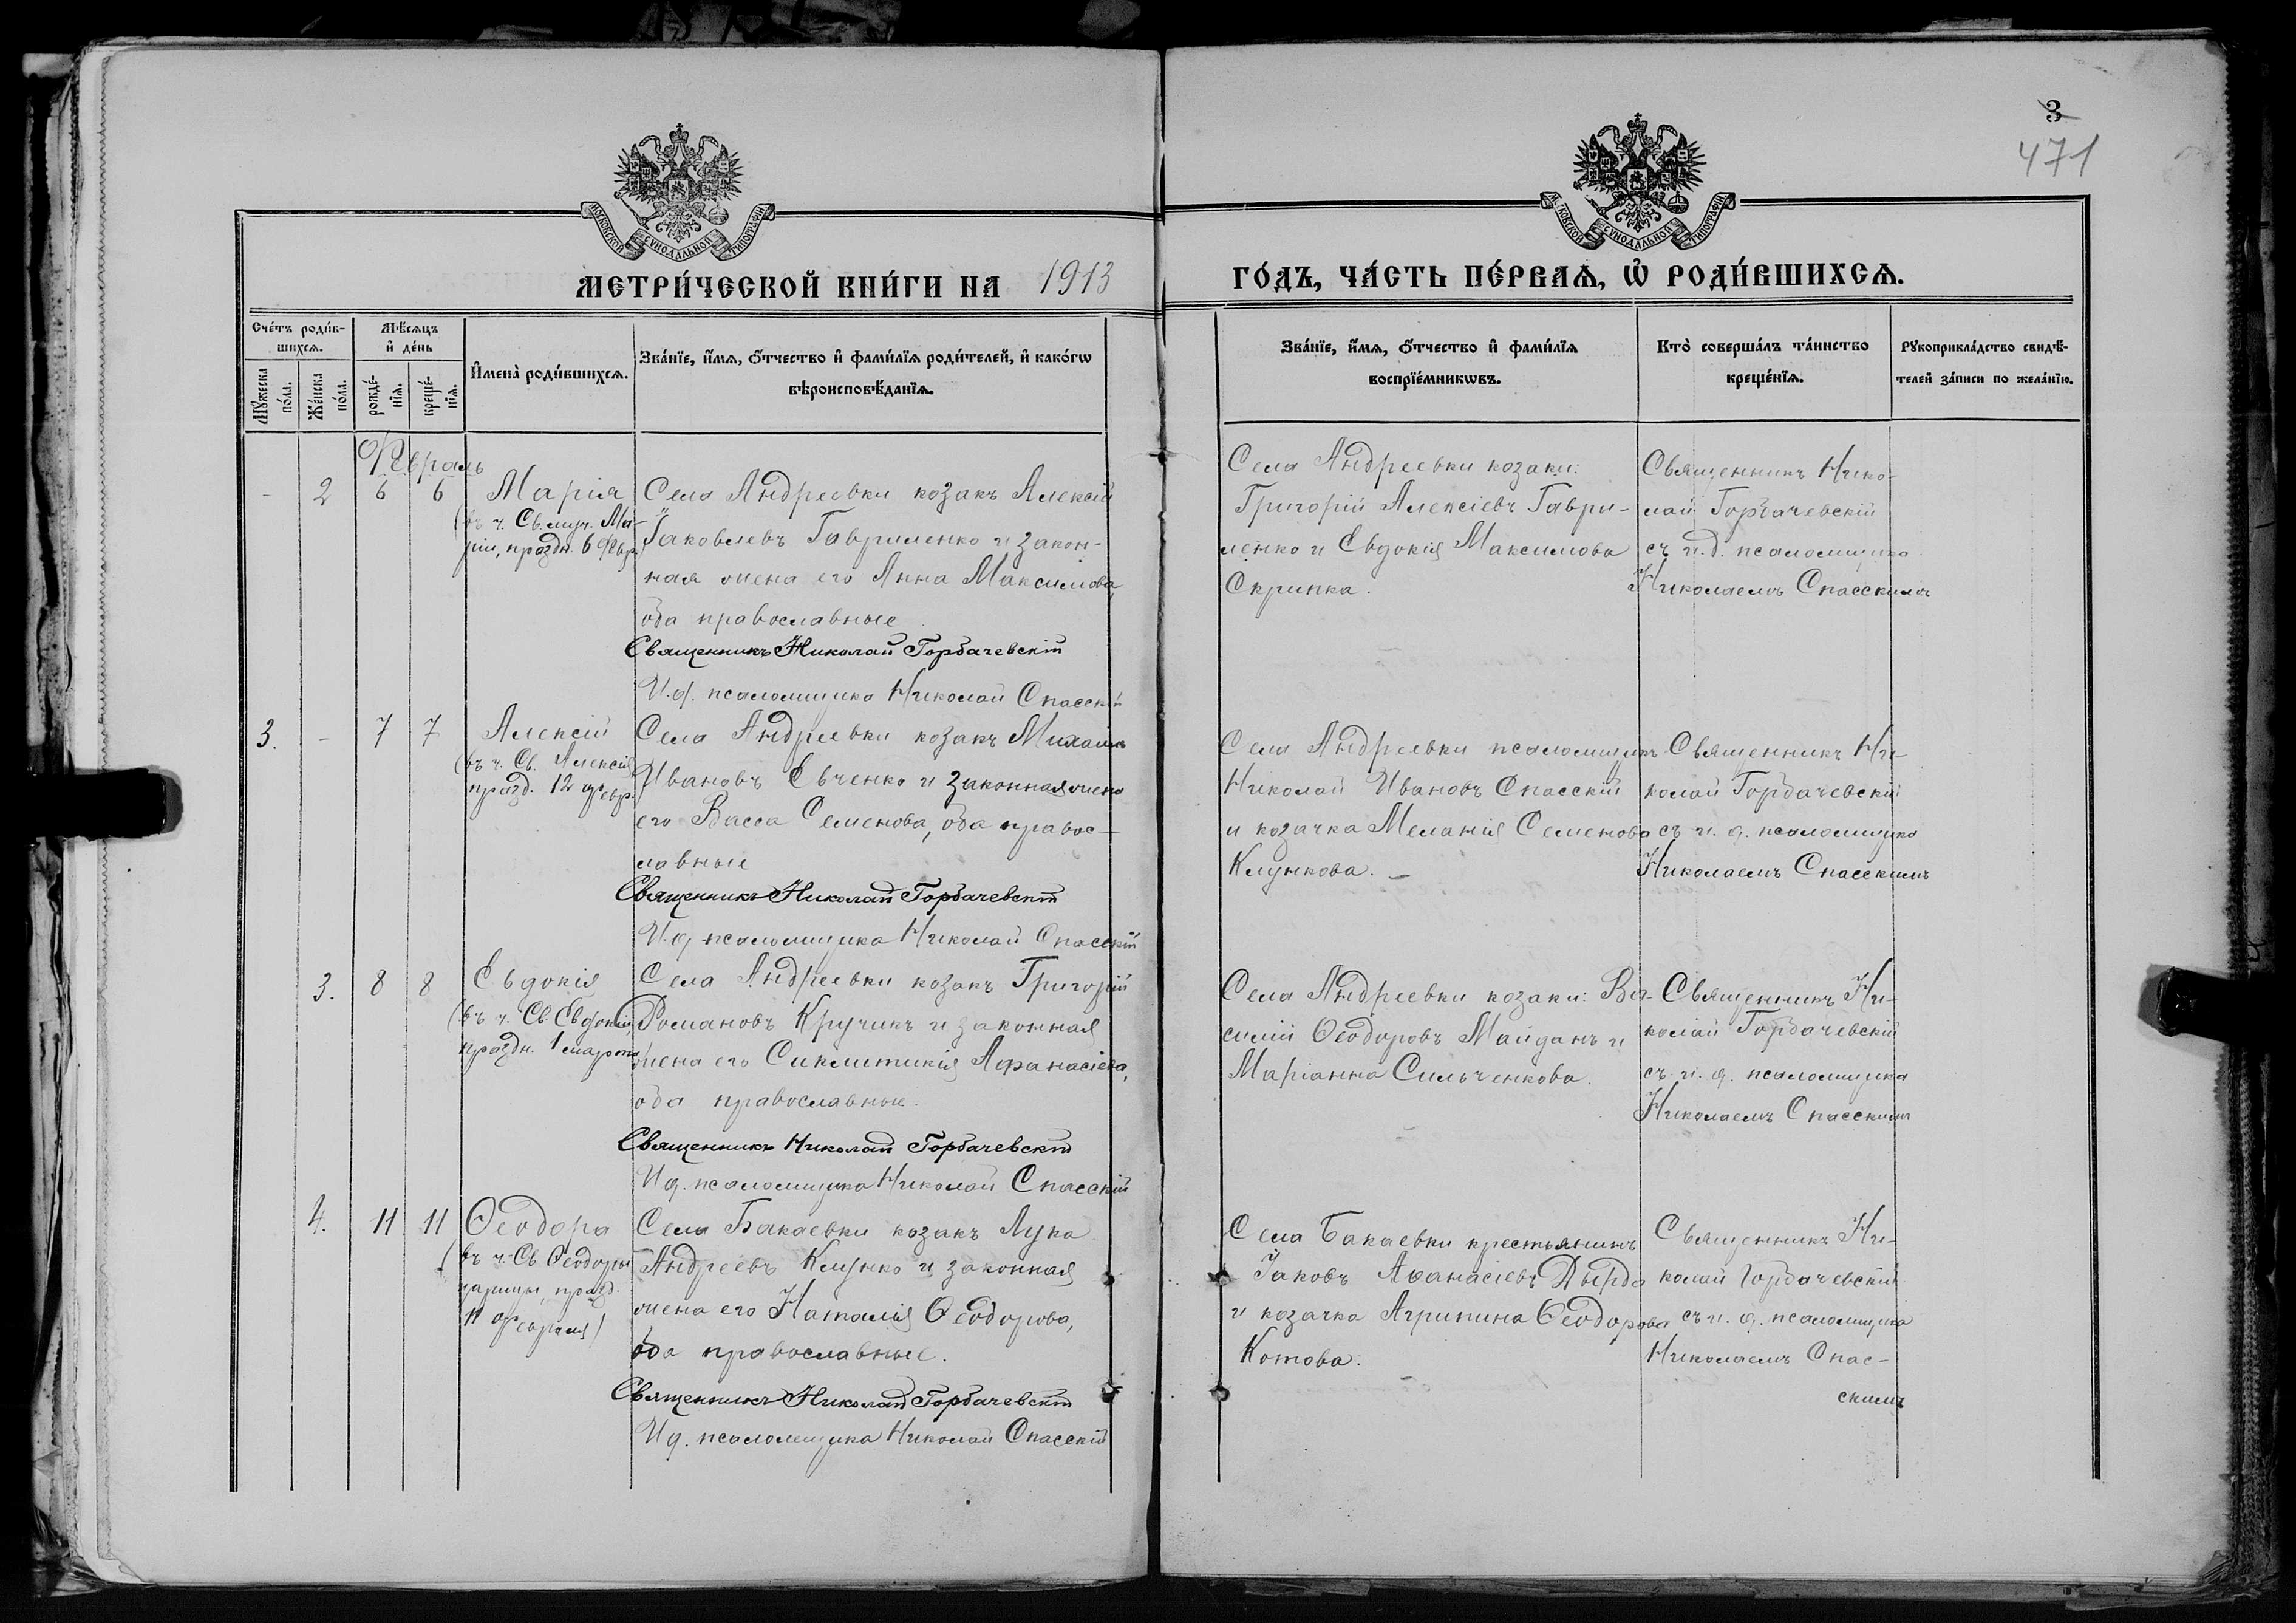 3
471
МОСКОВСКОЙ СУНОДАЛЬНОЙ ТИПОГРАФІИ
МОСКОВСКОЙ СУНОДАЛЬНОЙ ТИПОГРАФІИ
МЕТРИ́ЧЕСКОЙ КНИ́ГИ НА 1913
ГО́ДЪ, ЧА́СТЬ ПЕ́РВАѦ, Ѡ҆ РОДИ́ВШИХСѦ.
Сче́тъ роди́в-
шихсѧ.
Мꙋ́жеска по́ла.
Же́нска по́ла.
Мѣ́сѧцъ
и҆ де́нь
рожде́-
нїѧ.
креще́-
нїѧ.
И҆мена̀ роди́вшихсѧ.
Зва́нїе, и҆́мѧ, ѻ҆́тчество и҆ фами́лїѧ роди́телей, и҆ како́гѡ
вѣроисповѣ́данїѧ.
Зва́нїе, и҆́мѧ, ѻ҆́тчество и҆ фами́лїѧ
воспрїе́мникѡвъ.
Кто̀ соверша́лъ та́инство
креще́нїѧ.
Рꙋкоприкла́дство свидѣ́-
телей за́писи по жела́нїю.
Февраль
- 2 6 6
Марія
(въ ч. Св. муч. Ма-
ріи, праздн. 6 февр.)
Села Андреевки козакъ Алексій
Іаковлевъ Гавриленко и закон-
ная жена его Анна Максимова,
оба православные
Священникъ Николай Горбачевскій
И. д. псаломщика Николай Спасскій
Села Андреевки козаки:
Григорій Алексіевъ Гаври-
ленко и Евдокія Максимова
Скрипка.
Священникъ Нико-
лай Горбачевскій
съ и. д. псаломщика
Николаемъ Спасскимъ
3. - 7 7
Алексій
(въ ч. Св. Алексія,
празд. 12 февр.)
Села Андреевки козакъ Михаилъ
Ивановъ Евченко и законная жена
его Васса Семенова, оба правос-
лавные
Священникъ Николай Горбачевскій
И. д. псаломщика Николай Спасскій
Села Андреевки псаломщикъ
Николай Ивановъ Спасскій
и козачка Меланія Семенова
Клункова. –
Священникъ Ни-
колай Горбачевскій
съ и. д. псаломщика
Николаемъ Спасскимъ
3. 8 8
Евдокія
(въ ч. Св. Евдокіи,
праздн. 1 марта)
Села Андреевки козакъ Григорій
Романовъ Кручикъ и законная
жена его Сиклитикія Афанасіева,
оба православные.
Священникъ Николай Горбачевскій
И. д. псаломщика Николай Спасскій
Села Андреевки козаки: Ва-
силій Ѳеодоровъ Майданъ и
Маріанна Сильченкова.
Священникъ Ни-
колай Горбачевскій
съ и. д. псаломщика
Николаемъ Спасскимъ
4. 11 11
Ѳеодора
(въ ч. Св. Ѳеодоры
царицы, празд.
11 февраля)
Села Бакаевки козакъ Лука
Андреевъ Клунко и законная
жена его Наталія Ѳеодорова,
оба православные.
Священникъ Николай Горбачевскій
И. д. псаломщика Николай Спасскій
Села Бакаевки крестьянинъ
Іаковъ Аѳанасіевъ Дырда
и козачка Агрипина Ѳеодорова
Котова.
Священникъ Ни-
колай Горбачевскій
съ и. д. псаломщика
Николаемъ Спас-
скимъ